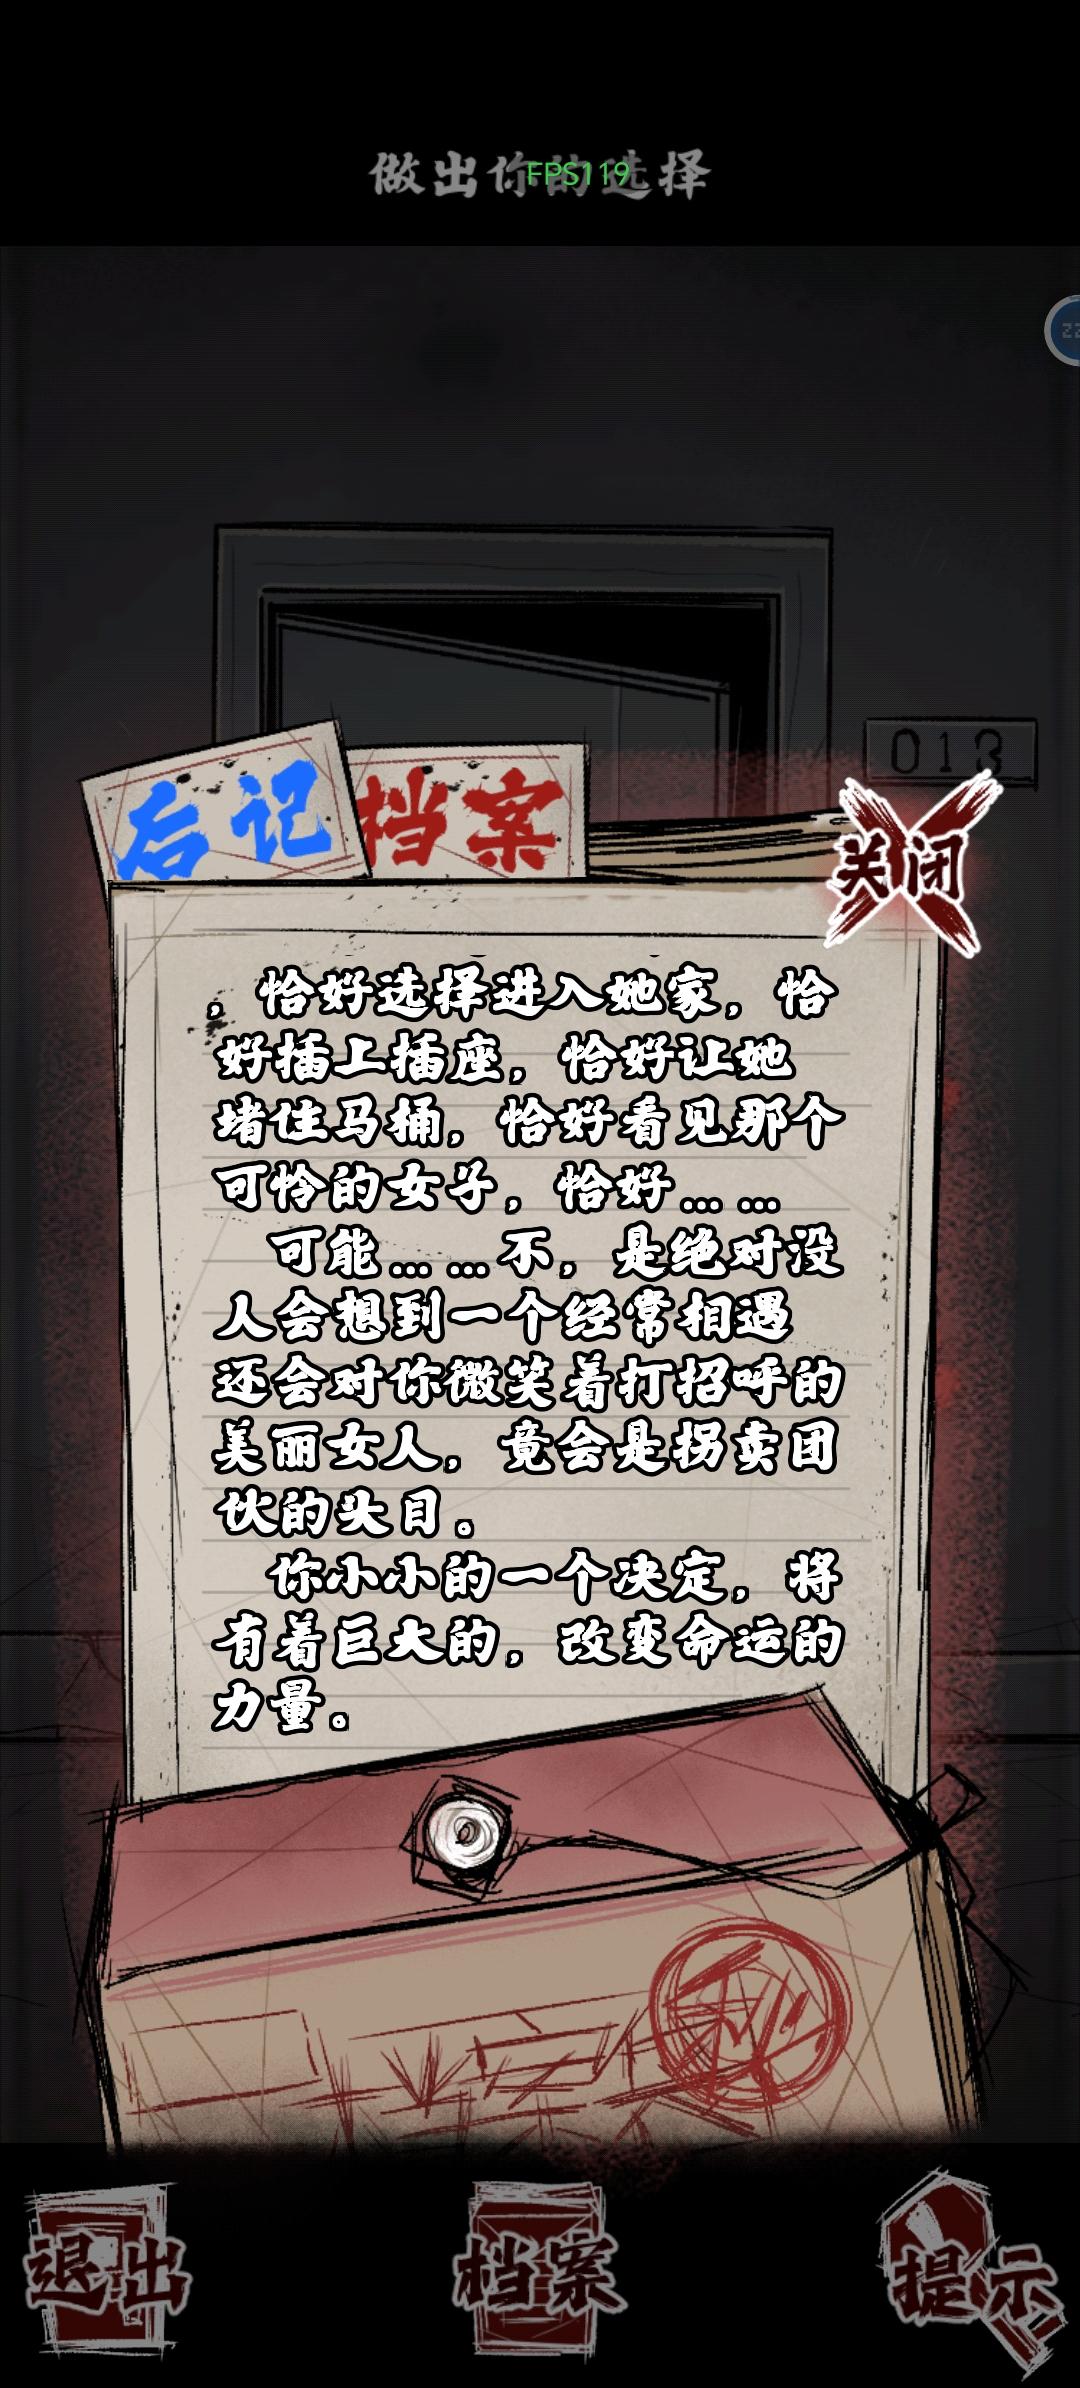 做出你的选择
FPS119
013
后记
档案
关闭
，恰好选择进入她家，恰
好插上插座，恰好让她
堵住马桶，恰好看见那个
可怜的女子，恰好……
可能……不，是绝对没
人会想到一个经常相遇
还会对你微笑着打招呼的
美丽女人，竟会是拐卖团
伙的头目。
你小小的一个决定，将
有着巨大的，改变命运的
力量。
退出
档案
提示